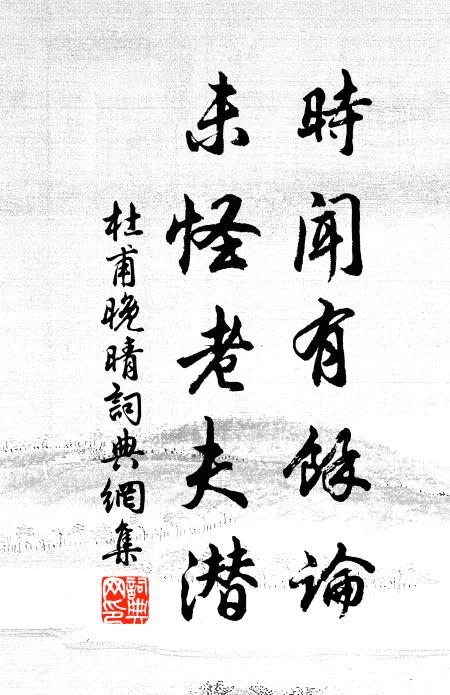 時聞有餘論
未怪老夫潛
杜甫晚晴詞典網集
詞典网印